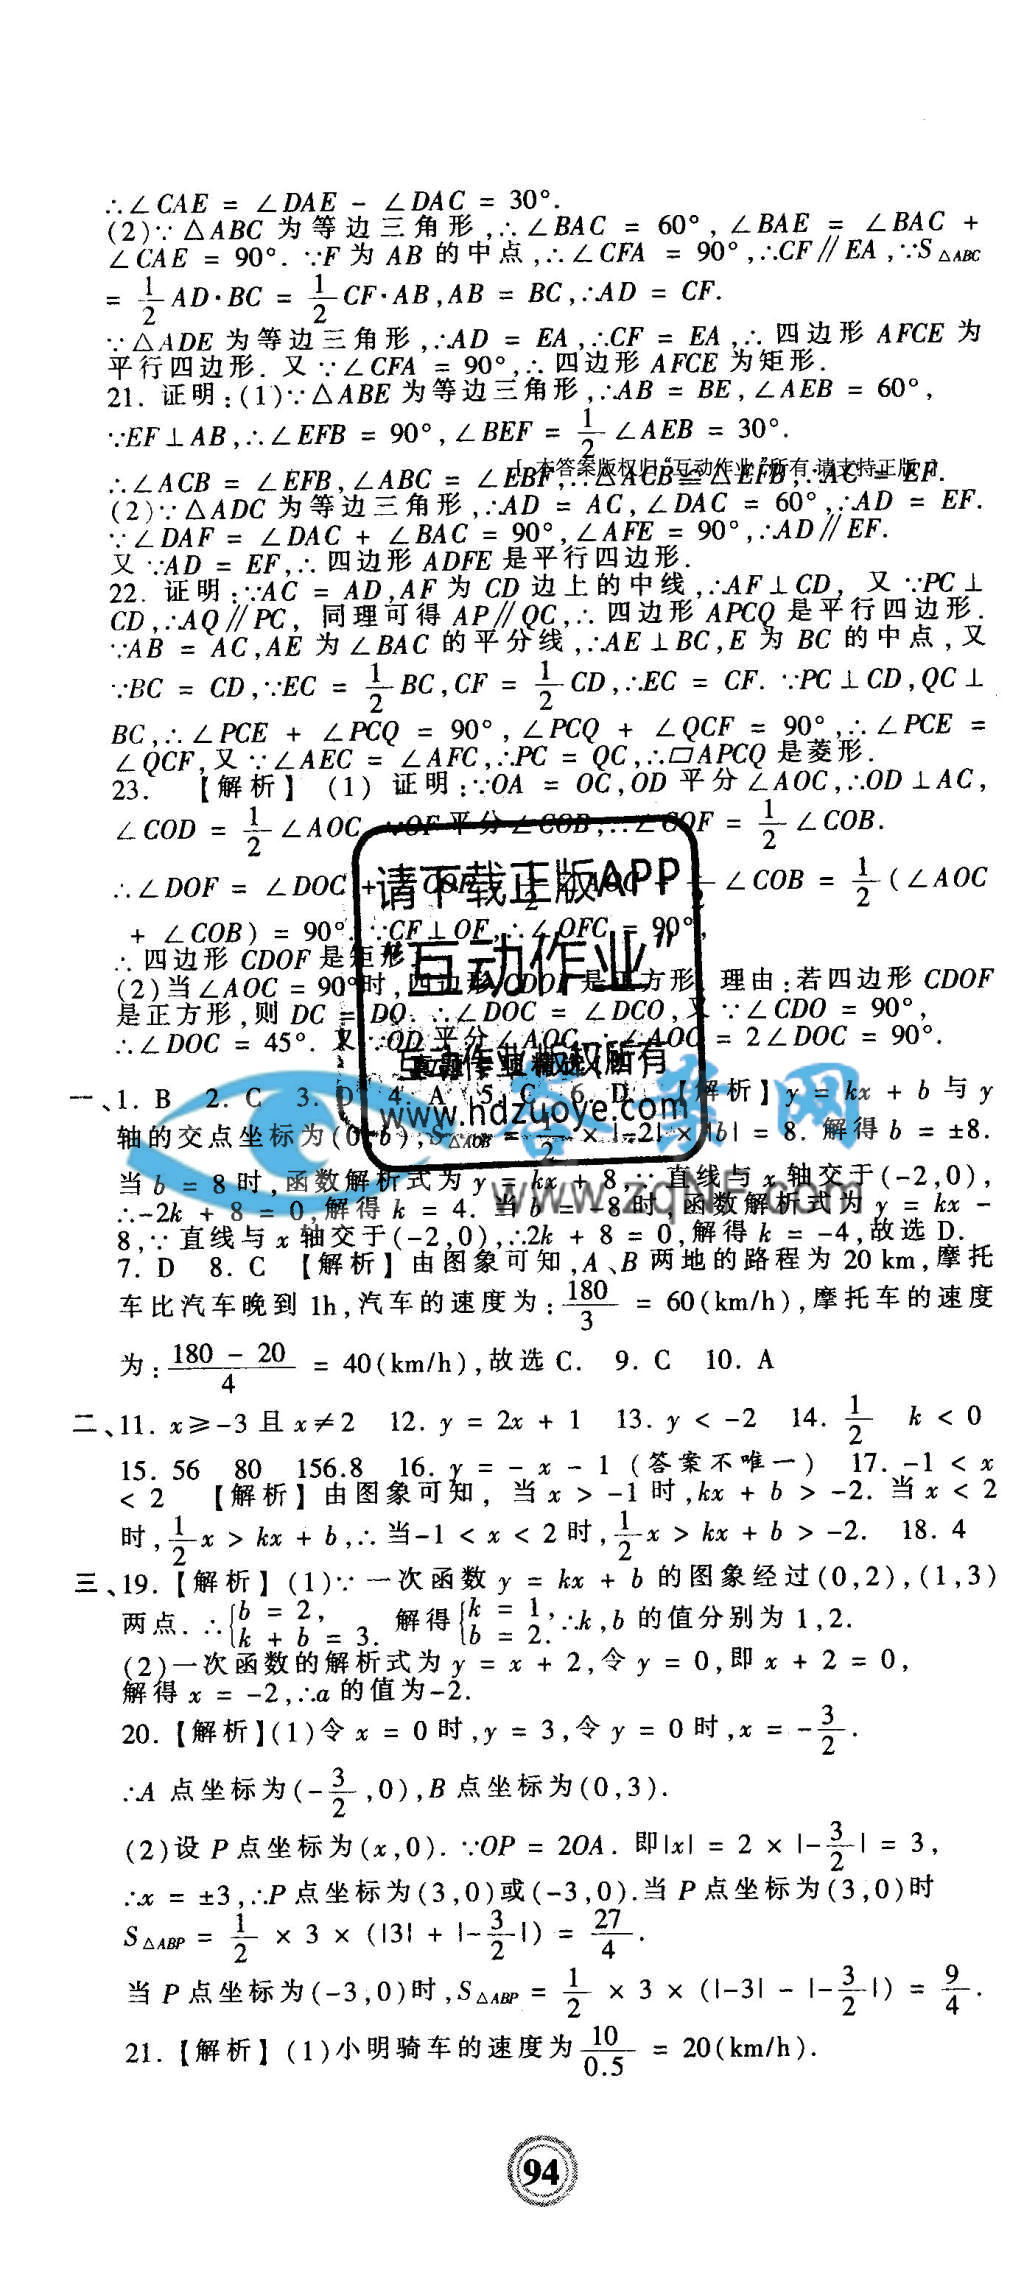 ∴∠CAE = ∠DAE - ∠DAC = 30°.
(2)∵△ABC 为等边三角形,∴∠BAC = 60°,∠BAE = ∠BAC +
∠CAE = 90°. ∵F 为 AB 的中点,∴∠CFA = 90°,∴CF∥EA,∵S△ABC
= 1/2 AD·BC = 1/2 CF·AB,AB = BC,∴AD = CF.
∵△ADE 为等边三角形,∴AD = EA,∴CF = EA,∴四边形 AFCE 为
平行四边形. 又∵∠CFA = 90°,∴四边形 AFCE 为矩形.
21. 证明:(1)∵△ABE 为等边三角形,∴AB = BE,∠AEB = 60°,
∵EF⊥AB,∴∠EFB = 90°,∠BEF = 1/2 ∠AEB = 30°.
本答案版权归“互动作业”所有,请支持正版
∴∠ACB = ∠EFB,∠ABC = ∠EBF,∴△ACB≌△EFB,∴AC = EF.
(2)∵△ADC 为等边三角形,∴AD = AC,∠DAC = 60°,∴AD = EF.
∵∠DAF = ∠DAC + ∠BAC = 90°,∠AFE = 90°,∴AD∥EF.
又∵AD = EF,∴四边形 ADFE 是平行四边形.
22. 证明:∵AC = AD,AF 为 CD 边上的中线,∴AF⊥CD, 又∵PC⊥
CD,∴AQ∥PC, 同理可得 AP∥QC,∴四边形 APCQ 是平行四边形.
∵AB = AC,AE 为∠BAC 的平分线,∴AE⊥BC,E 为 BC 的中点,又
∵BC = CD,∵EC = 1/2 BC,CF = 1/2 CD,∴EC = CF. ∵PC⊥CD,QC⊥
BC,∴∠PCE + ∠PCQ = 90°,∠PCQ + ∠QCF = 90°,∴∠PCE =
∠QCF,又∵∠AEC = ∠AFC,∴PC = QC,∴▱APCQ 是菱形.
23. 【解析】 (1) 证明:∵OA = OC,OD 平分∠AOC,∴OD⊥AC,
∠COD = 1/2 ∠AOC,∵OF 平分∠COB,∴∠COF = 1/2 ∠COB.
∴∠DOF = ∠DOC + ∠COF = 1/2 ∠AOC + 1/2 ∠COB = 1/2 (∠AOC
+ ∠COB) = 90°. ∵CF⊥OF,∴∠OFC = 90°,
∴四边形 CDOF 是矩形.
(2)当∠AOC = 90°时,四边形 CDOF 是正方形. 理由:若四边形 CDOF
是正方形,则 DC = DO. ∴∠DOC = ∠DCO,又∵∠CDO = 90°,
∴∠DOC = 45°. 又∵OD 平分∠AOC,∴∠AOC = 2∠DOC = 90°.
请下载正版APP
“互动作业”
互动作业版权所有
www.hdzuoye.com
www.zqNF.com
一、1. B 2. C 3. D 4. A 5. C 6. D 【解析】y = kx + b 与 y
轴的交点坐标为(0,b),S△AOB = 1/2 × |-2| × |b| = 8. 解得 b = ±8.
当 b = 8 时,函数解析式为 y = kx + 8,∵直线与 x 轴交于(-2,0),
∴-2k + 8 = 0,解得 k = 4. 当 b = -8 时,函数解析式为 y = kx -
8,∵直线与 x 轴交于(-2,0),∴2k + 8 = 0,解得 k = -4,故选 D.
7. D 8. C 【解析】由图象可知,A、B 两地的路程为 20 km,摩托
车比汽车晚到 1h,汽车的速度为:180/3 = 60(km/h),摩托车的速度
为:(180 - 20)/4 = 40(km/h),故选 C. 9. C 10. A
二、11. x≥-3 且 x≠2 12. y = 2x + 1 13. y < -2 14. 1/2 k < 0
15. 56 80 156.8 16. y = - x - 1 (答案不唯一) 17. -1 < x
< 2 【解析】由图象可知, 当 x > -1 时,kx + b > -2. 当 x < 2
时,1/2 x > kx + b,∴当-1 < x < 2 时,1/2 x > kx + b > -2. 18. 4
三、19.【解析】(1)∵一次函数 y = kx + b 的图象经过(0,2),(1,3)
两点. ∴{b = 2, k + b = 3. 解得{k = 1, b = 2. ∴k,b 的值分别为 1,2.
(2)一次函数的解析式为 y = x + 2,令 y = 0,即 x + 2 = 0,
解得 x = -2,∴a 的值为-2.
20.【解析】(1)令 x = 0 时,y = 3,令 y = 0 时,x = -3/2.
∴A 点坐标为(-3/2,0),B 点坐标为(0,3).
(2)设 P 点坐标为(x,0). ∵OP = 2OA. 即|x| = 2 × |-3/2| = 3,
∴x = ±3,∴P 点坐标为(3,0)或(-3,0).当 P 点坐标为(3,0)时
S△ABP = 1/2 × 3 × (|3| + |-3/2|) = 27/4.
当 P 点坐标为(-3,0)时,S△ABP = 1/2 × 3 × (|-3| - |-3/2|) = 9/4.
21.【解析】(1)小明骑车的速度为 10/0.5 = 20(km/h).
94